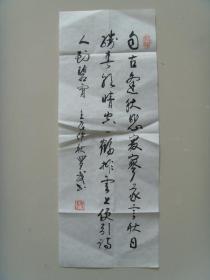 自古逢秋悲寂寥我言秋日
勝春朝晴空一鶴排雲上便引詩
情到碧霄